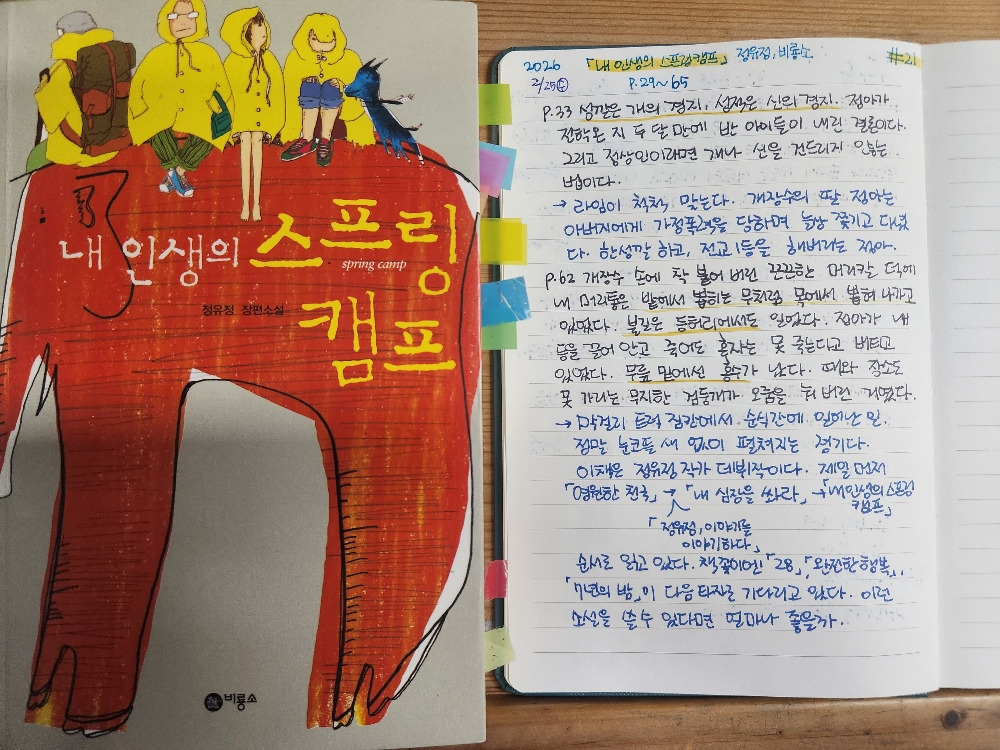 내 인생의 스프링
spring camp
정유정 장편소설
캠프
비룡소
2026 「내 인생의 스프링캠프」 정유정, 비룡소 #21
2/25 P.29~65
p.33 성깔은 개의 경지, 성적은 신의 경지. 정아가
전학온 지 두 달 만에 반 아이들이 내린 결론이다.
그리고 정상인이라면 개나 신을 건드리지 않는
법이다.
→ 라임이 척척 맞는다. 개장수의 딸 정아는
아버지에게 가정폭력을 당하며 늘상 쫓기고 다녔
다. 한성깔 하고, 전교 1등을 해버리는 정아.
p.62 개장수 손에 착 붙어 버린 끈끈한 머리카락 덕에
내 머리통은 밭에서 뽑히는 무처럼 목에서 뽑혀 나가고
있었다. 불길은 등허리에서도 일었다. 정아가 내
등을 끌어 안고 죽어도 혼자는 못 죽는다고 버티고
있었다. 무릎 밑에선 홍수가 났다. 때와 장소도
못 가리는 무지한 검둥개가 오줌을 싸 버린 것이었다.
→ 막걸리 트럭 짐칸에서 순식간에 일어난 일.
정말 눈코뜰 새 없이 펼쳐지는 경기다.
이책은 정유정 작가 데뷔작이다. 제일 먼저
「영원한 천국」 → 「내 심장을 쏴라」 → 「내인생의 스프링
캠프」
「정유정, 이야기를
이야기하다」
순서로 읽고 있다. 책꽂이엔 「28」, 「완전한 행복」,
「7년의 밤」이 다음 타자로 기다리고 있다. 이런
소설을 쓸 수 있다면 얼마나 좋을까.